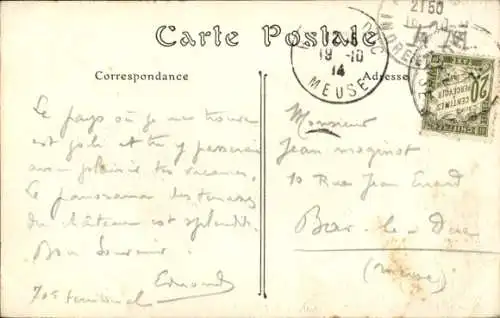 Carte Postale
Correspondance
Adresse
19-10
14
MEUSE
21 50
INDRE-ET-L
20
CENTIMES
À PERCEVOIR
Le pays où je me trouve
est joli et tu y passerais
avec plaisir tes vacances.
Le panorama des terrasses
du château est splendide.
Bon Souvenir.
Edmond
Monsieur
Jean Maginot
10 Rue Jean Errard
Bar-le-Duc
(Meuse)